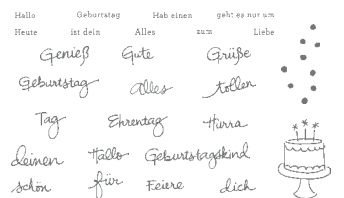 Hallo Geburtstag Hab einen geht es nur um
Heute ist dein Alles zum Liebe
Genieß Gute Grüße
Geburtstag alles tollen
Tag Ehrentag Hurra
deinen Hallo Geburtstagskind
schön für Feiere dich